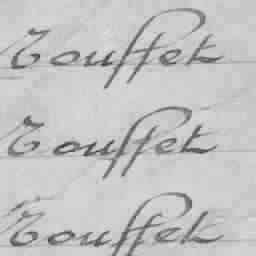 Touffet
Touffet
Touffet